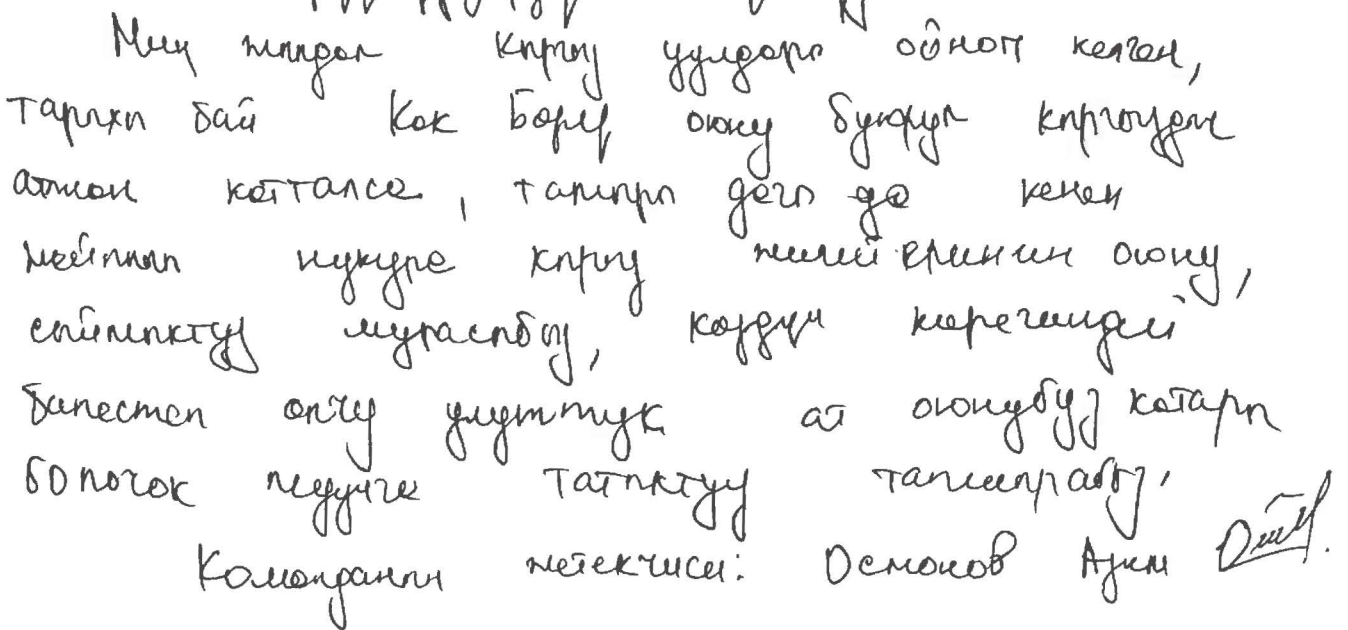 Миң жылдап Кыргыз уулдары ойноп келген,
тарыхы бай Көк Бөрү оюну бүткүл кыргызды
катталса, тышкы дагы да кенен
жайылып нукура кыргыз оюну,
сыймыктуу мурасыбыз, көздүн карегиндей
бапестеп улуттук ат оюнубуз катары
болочок муунга татыктуу тапшырабыз.
Команданын жетекчиси: Осмонов Азим